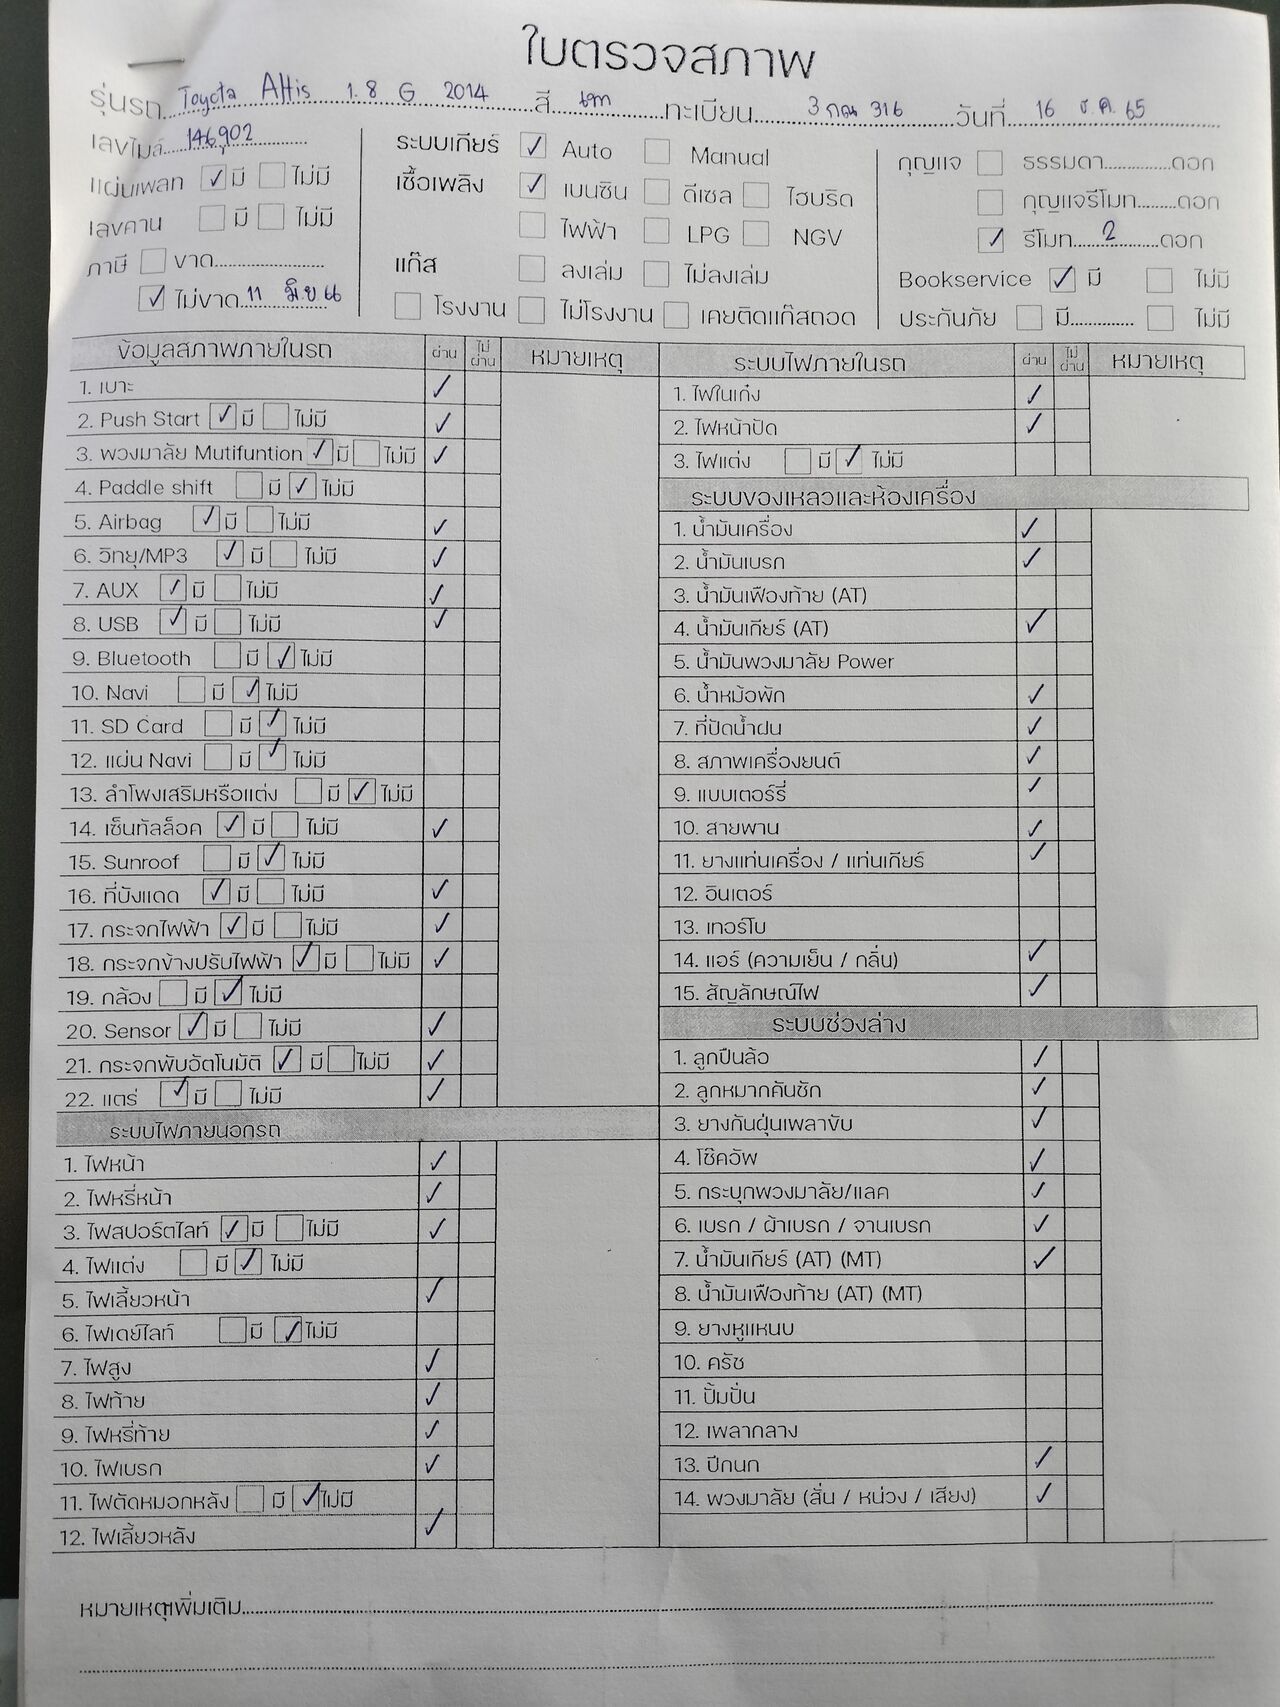 ใบตรวจสภาพ
รุ่นรถ Toyota Altis 1.8 G 2014 สี เทา ทะเบียน 3 กณ 316 วันที่ 16 ธ.ค. 65
เลขไมล์ 146,902
แผ่นเพลท ✓ มี ไม่มี
เลขคาน มี ไม่มี
ภาษี ขาด
✓ ไม่ขาด 11 มิ.ย 66
ระบบเกียร์ ✓ Auto Manual
เชื้อเพลิง ✓ เบนซิน ดีเซล ไฮบริด
ไฟฟ้า LPG NGV
แก๊ส ลงเล่ม ไม่ลงเล่ม
โรงงาน ไม่โรงงาน เคยติดแก๊สถอด
กุญแจ ธรรมดา ดอก
กุญแจรีโมท ดอก
✓ รีโมท 2 ดอก
Bookservice ✓ มี ไม่มี
ประกันภัย มี ไม่มี
ข้อมูลสภาพภายในรถ ผ่าน ไม่ผ่าน หมายเหตุ
1. เบาะ ✓
2. Push Start ✓ มี ไม่มี ✓
3. พวงมาลัย Mutifuntion ✓ มี ไม่มี ✓
4. Paddle shift มี ✓ ไม่มี
5. Airbag ✓ มี ไม่มี ✓
6. วิทยุ/MP3 ✓ มี ไม่มี ✓
7. AUX ✓ มี ไม่มี ✓
8. USB ✓ มี ไม่มี ✓
9. Bluetooth มี ✓ ไม่มี
10. Navi มี ✓ ไม่มี
11. SD Card มี ✓ ไม่มี
12. แผ่น Navi มี ✓ ไม่มี
13. ลำโพงเสริมหรือแต่ง มี ✓ ไม่มี
14. เซ็นทัลล็อค ✓ มี ไม่มี ✓
15. Sunroof มี ✓ ไม่มี
16. ที่บังแดด ✓ มี ไม่มี ✓
17. กระจกไฟฟ้า ✓ มี ไม่มี ✓
18. กระจกข้างปรับไฟฟ้า ✓ มี ไม่มี ✓
19. กล้อง มี ✓ ไม่มี
20. Sensor ✓ มี ไม่มี ✓
21. กระจกพับอัตโนมัติ ✓ มี ไม่มี ✓
22. แตร่ ✓ มี ไม่มี ✓
ระบบไฟภายนอกรถ
1. ไฟหน้า ✓
2. ไฟหรี่หน้า ✓
3. ไฟสปอร์ตไลท์ ✓ มี ไม่มี ✓
4. ไฟแต่ง มี ✓ ไม่มี
5. ไฟเลี้ยวหน้า ✓
6. ไฟเดย์ไลท์ มี ✓ ไม่มี
7. ไฟสูง ✓
8. ไฟท้าย ✓
9. ไฟหรี่ท้าย ✓
10. ไฟเบรก ✓
11. ไฟตัดหมอกหลัง มี ✓ ไม่มี
12. ไฟเลี้ยวหลัง ✓
ระบบไฟภายในรถ ผ่าน ไม่ผ่าน หมายเหตุ
1. ไฟในเก๋ง ✓
2. ไฟหน้าปัด ✓
3. ไฟแต่ง มี ✓ ไม่มี
ระบบของเหลวและห้องเครื่อง
1. น้ำมันเครื่อง ✓
2. น้ำมันเบรก ✓
3. น้ำมันเฟืองท้าย (AT)
4. น้ำมันเกียร์ (AT) ✓
5. น้ำมันพวงมาลัย Power
6. น้ำหม้อพัก ✓
7. ที่ปัดน้ำฝน ✓
8. สภาพเครื่องยนต์ ✓
9. แบบเตอร์รี่ ✓
10. สายพาน ✓
11. ยางแท่นเครื่อง / แท่นเกียร์ ✓
12. อินเตอร์
13. เทอร์โบ
14. แอร์ (ความเย็น / กลิ่น) ✓
15. สัญลักษณ์ไฟ ✓
ระบบช่วงล่าง
1. ลูกปืนล้อ ✓
2. ลูกหมากคันชัก ✓
3. ยางกันฝุ่นเพลาขับ ✓
4. โช๊คอัพ ✓
5. กระบุกพวงมาลัย/แลค ✓
6. เบรก / ผ้าเบรก / จานเบรก ✓
7. น้ำมันเกียร์ (AT) (MT) ✓
8. น้ำมันเฟืองท้าย (AT) (MT)
9. ยางหูแหนบ
10. ครัช
11. ปั้มปั่น
12. เพลากลาง
13. ปีกนก ✓
14. พวงมาลัย (สั่น / หน่วง / เสียง) ✓
หมายเหตุเพิ่มเติม